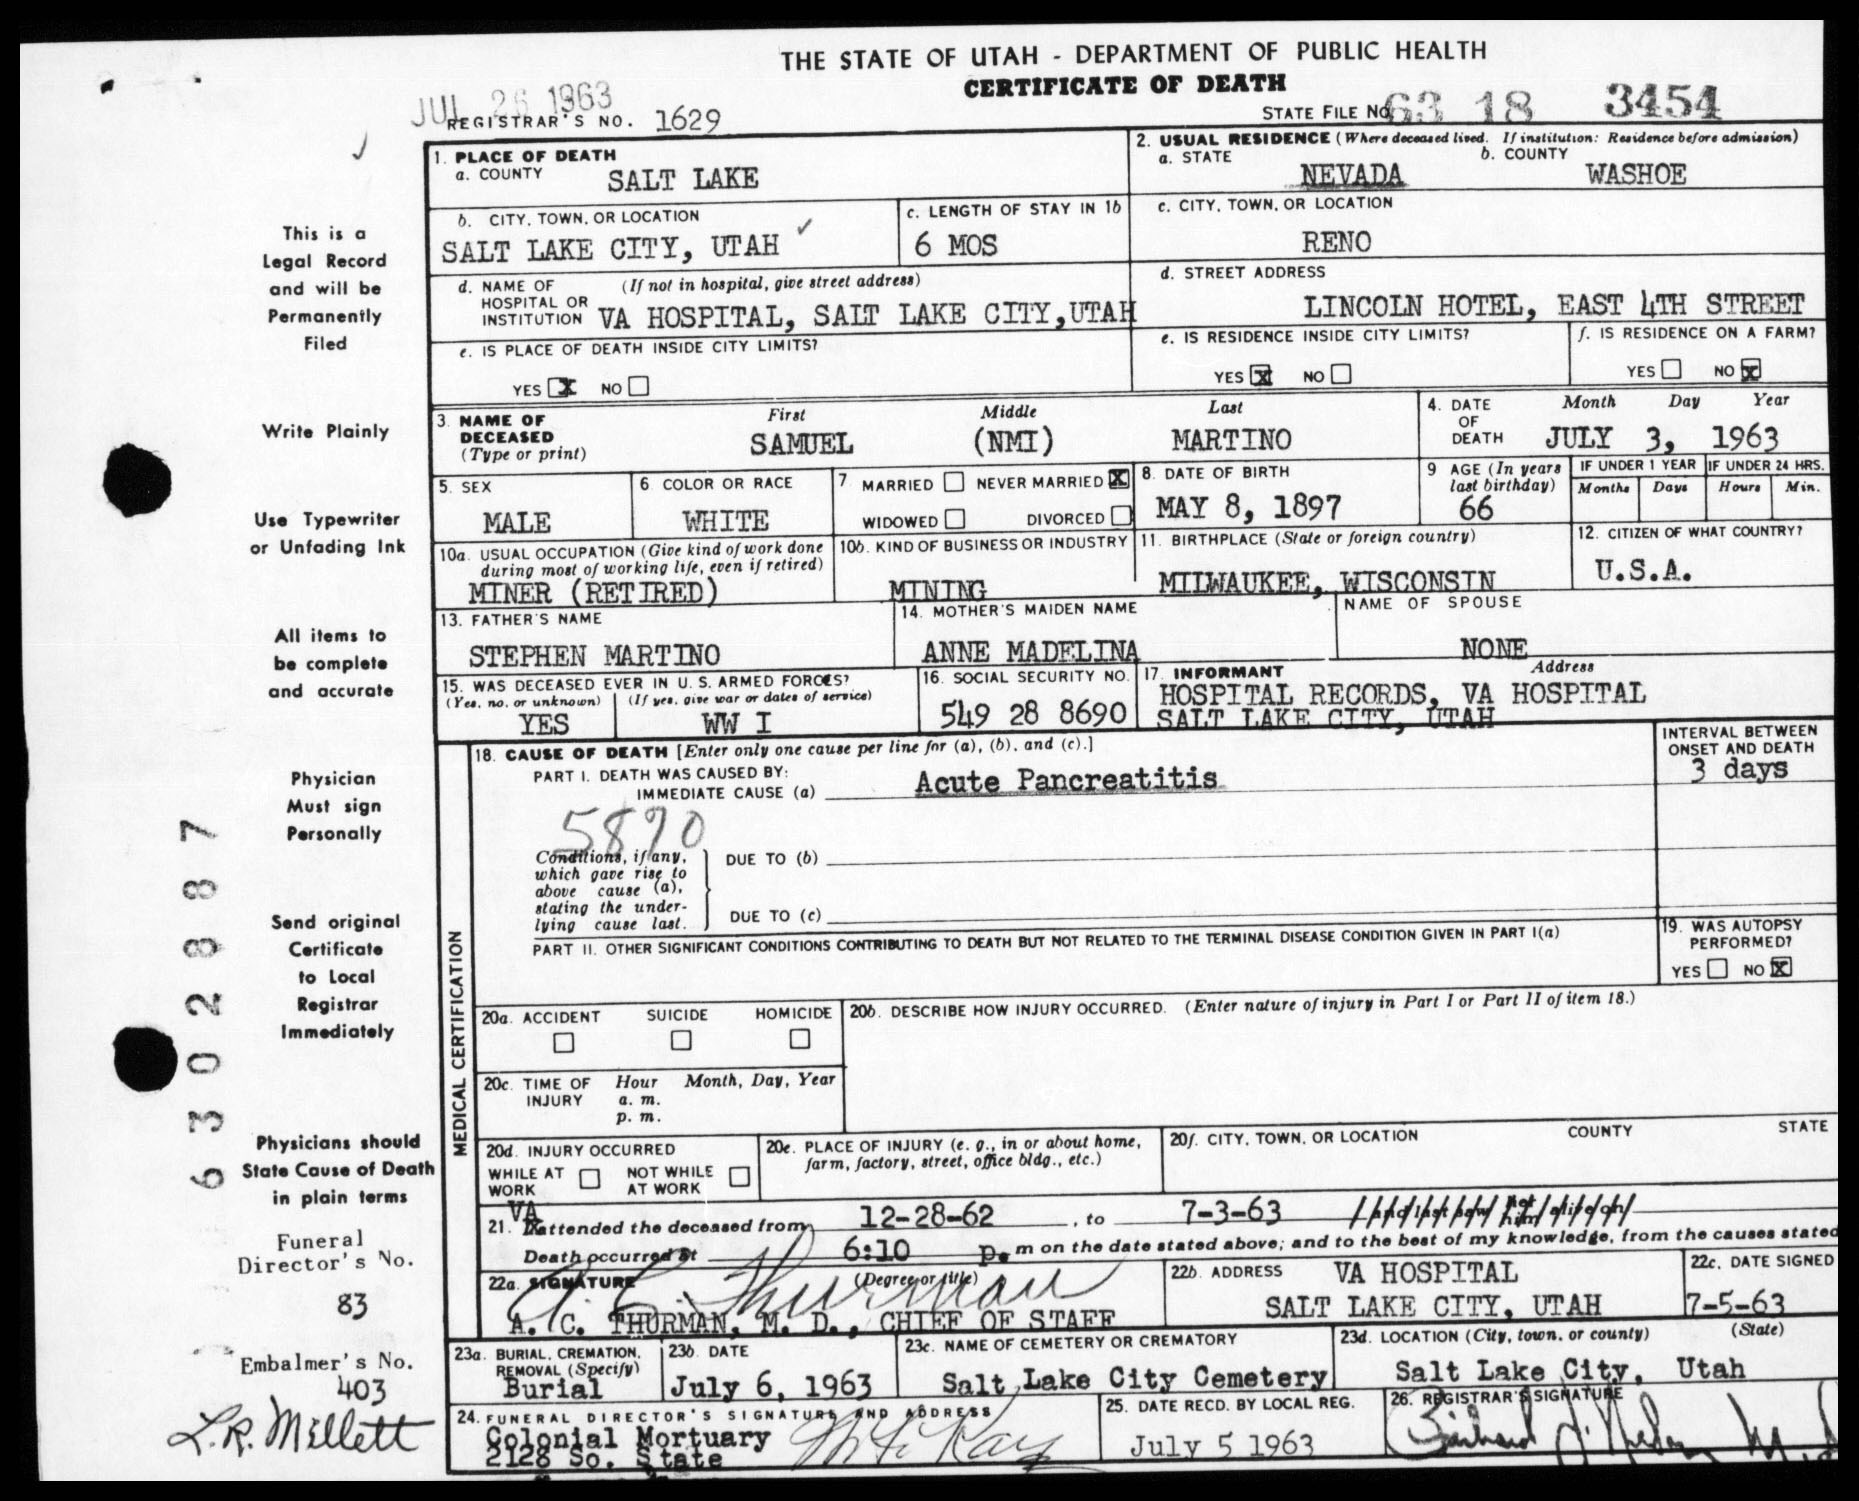 THE STATE OF UTAH - DEPARTMENT OF PUBLIC HEALTH
CERTIFICATE OF DEATH
JUL 26 1963
REGISTRAR'S NO. 1629
STATE FILE NO. 63 18 3454
This is a
Legal Record
and will be
Permanently
Filed
Write Plainly
Use Typewriter
or Unfading Ink
All items to
be complete
and accurate
Physician
Must sign
Personally
Send original
Certificate
to Local
Registrar
Immediately
Physicians should
State Cause of Death
in plain terms
Funeral
Director's No.
83
Embalmer's No.
403
L.R. Millett
6302887
1. PLACE OF DEATH
a. COUNTY SALT LAKE
2. USUAL RESIDENCE (Where deceased lived. If institution: Residence before admission)
a. STATE b. COUNTY
NEVADA WASHOE
b. CITY, TOWN, OR LOCATION
SALT LAKE CITY, UTAH
c. LENGTH OF STAY IN 1b
6 MOS
c. CITY, TOWN, OR LOCATION
RENO
d. NAME OF HOSPITAL OR INSTITUTION (If not in hospital, give street address)
VA HOSPITAL, SALT LAKE CITY, UTAH
d. STREET ADDRESS
LINCOLN HOTEL, EAST 4TH STREET
e. IS PLACE OF DEATH INSIDE CITY LIMITS?
YES X NO
e. IS RESIDENCE INSIDE CITY LIMITS?
YES X NO
f. IS RESIDENCE ON A FARM?
YES NO X
3. NAME OF DECEASED (Type or print)
First Middle Last
SAMUEL (NMI) MARTINO
4. DATE OF DEATH
Month Day Year
JULY 3, 1963
5. SEX
MALE
6. COLOR OR RACE
WHITE
7. MARRIED NEVER MARRIED X
WIDOWED DIVORCED
8. DATE OF BIRTH
MAY 8, 1897
9 AGE (In years last birthday)
66
IF UNDER 1 YEAR IF UNDER 24 HRS.
Months Days Hours Min.
10a. USUAL OCCUPATION (Give kind of work done during most of working life, even if retired)
MINER (RETIRED)
10b. KIND OF BUSINESS OR INDUSTRY
MINING
11. BIRTHPLACE (State or foreign country)
MILWAUKEE, WISCONSIN
12. CITIZEN OF WHAT COUNTRY?
U.S.A.
13. FATHER'S NAME
STEPHEN MARTINO
14. MOTHER'S MAIDEN NAME
ANNE MADELINA
NAME OF SPOUSE
NONE
15. WAS DECEASED EVER IN U. S. ARMED FORCES?
(Yes, no, or unknown) (If yes, give war or dates of service)
YES WW I
16. SOCIAL SECURITY NO.
549 28 8690
17. INFORMANT Address
HOSPITAL RECORDS, VA HOSPITAL
SALT LAKE CITY, UTAH
MEDICAL CERTIFICATION
18. CAUSE OF DEATH [Enter only one cause per line for (a), (b), and (c).]
INTERVAL BETWEEN ONSET AND DEATH
PART I. DEATH WAS CAUSED BY:
IMMEDIATE CAUSE (a) Acute Pancreatitis
3 days
5870
Conditions, if any, which gave rise to above cause (a), stating the underlying cause last.
DUE TO (b)
DUE TO (c)
PART II. OTHER SIGNIFICANT CONDITIONS CONTRIBUTING TO DEATH BUT NOT RELATED TO THE TERMINAL DISEASE CONDITION GIVEN IN PART I(a)
19. WAS AUTOPSY PERFORMED?
YES NO X
20a. ACCIDENT SUICIDE HOMICIDE
20b. DESCRIBE HOW INJURY OCCURRED. (Enter nature of injury in Part I or Part II of item 18.)
20c. TIME OF INJURY Hour Month, Day, Year
a. m.
p. m.
20d. INJURY OCCURRED
WHILE AT WORK NOT WHILE AT WORK
20e. PLACE OF INJURY (e. g., in or about home, farm, factory, street, office bldg., etc.)
20f. CITY, TOWN, OR LOCATION COUNTY STATE
21. VA attended the deceased from 12-28-62, to 7-3-63 and last saw him alive on
Death occurred at 6:10 p. m on the date stated above; and to the best of my knowledge, from the causes stated
22a. SIGNATURE (Degree or title)
A. C. Thurman
A. C. THURMAN, M. D., CHIEF OF STAFF
22b. ADDRESS VA HOSPITAL
SALT LAKE CITY, UTAH
22c. DATE SIGNED
7-5-63
23a. BURIAL, CREMATION, REMOVAL (Specify)
Burial
23b. DATE
July 6, 1963
23c. NAME OF CEMETERY OR CREMATORY
Salt Lake City Cemetery
23d. LOCATION (City, town, or county) (State)
Salt Lake City, Utah
24. FUNERAL DIRECTOR'S SIGNATURE AND ADDRESS
Colonial Mortuary
2128 So. State
25. DATE RECD. BY LOCAL REG.
July 5 1963
26. REGISTRAR'S SIGNATURE